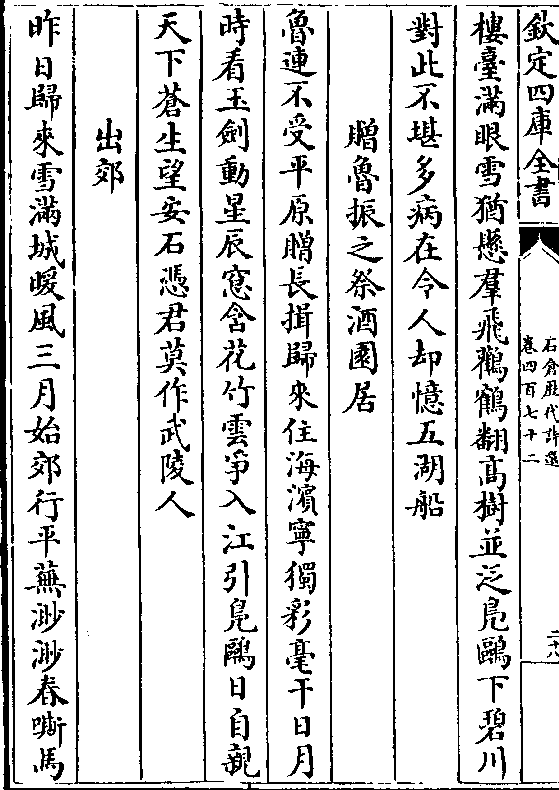 欽定四庫全書
石倉歷代詩選
卷四百七十二
二十八
樓臺滿眼雪猶懸羣飛鸛鶴翻高樹並泛鳬鷗下碧川
對此不堪多病在令人却憶五湖船
贈魯振之祭酒園居
魯連不受平原贈長揖歸來住海濱寧獨彩毫干日月
時看玉劍動星辰窓含花竹雲爭入江引鳬鷗日自親
天下蒼生望安石憑君莫作武陵人
出郊
昨日歸來雪滿城暖風三月始郊行平蕪渺渺春嘶馬